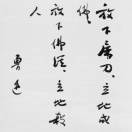 放下屠刀，立地成
佛
放下佛经，立地殺
人